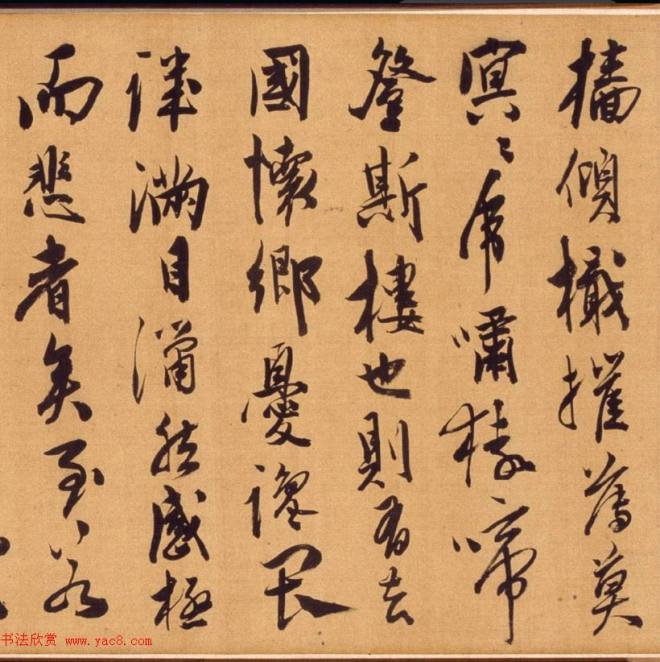 檣傾檝摧薄莫
冥〻虎嘯猿啼
登斯樓也則有去
國懷鄉憂讒畏
譏滿目瀟然感極
而悲者矣至若
书法欣赏 www.yac8.com